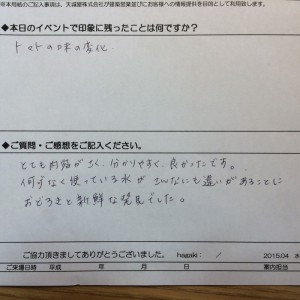 ※本用紙のご記入事項は、天誠建株式会社が建築営業並びにお客様への情報提供を目的として利用致します。
◆本日のイベントで印象に残ったことは何ですか?
トマトの味の変化.
◆ご質問・ご感想をご記入ください。
とても内容が 分かりやすく、良かったです。
何げなく使っている水が こんなにも違いがあることに
おどろきと新鮮な発見でした。
ご協力頂きましてありがとうございました。 hagaki: / 2015.04 水
ご来場日時 平成 年 月 日 案内担当